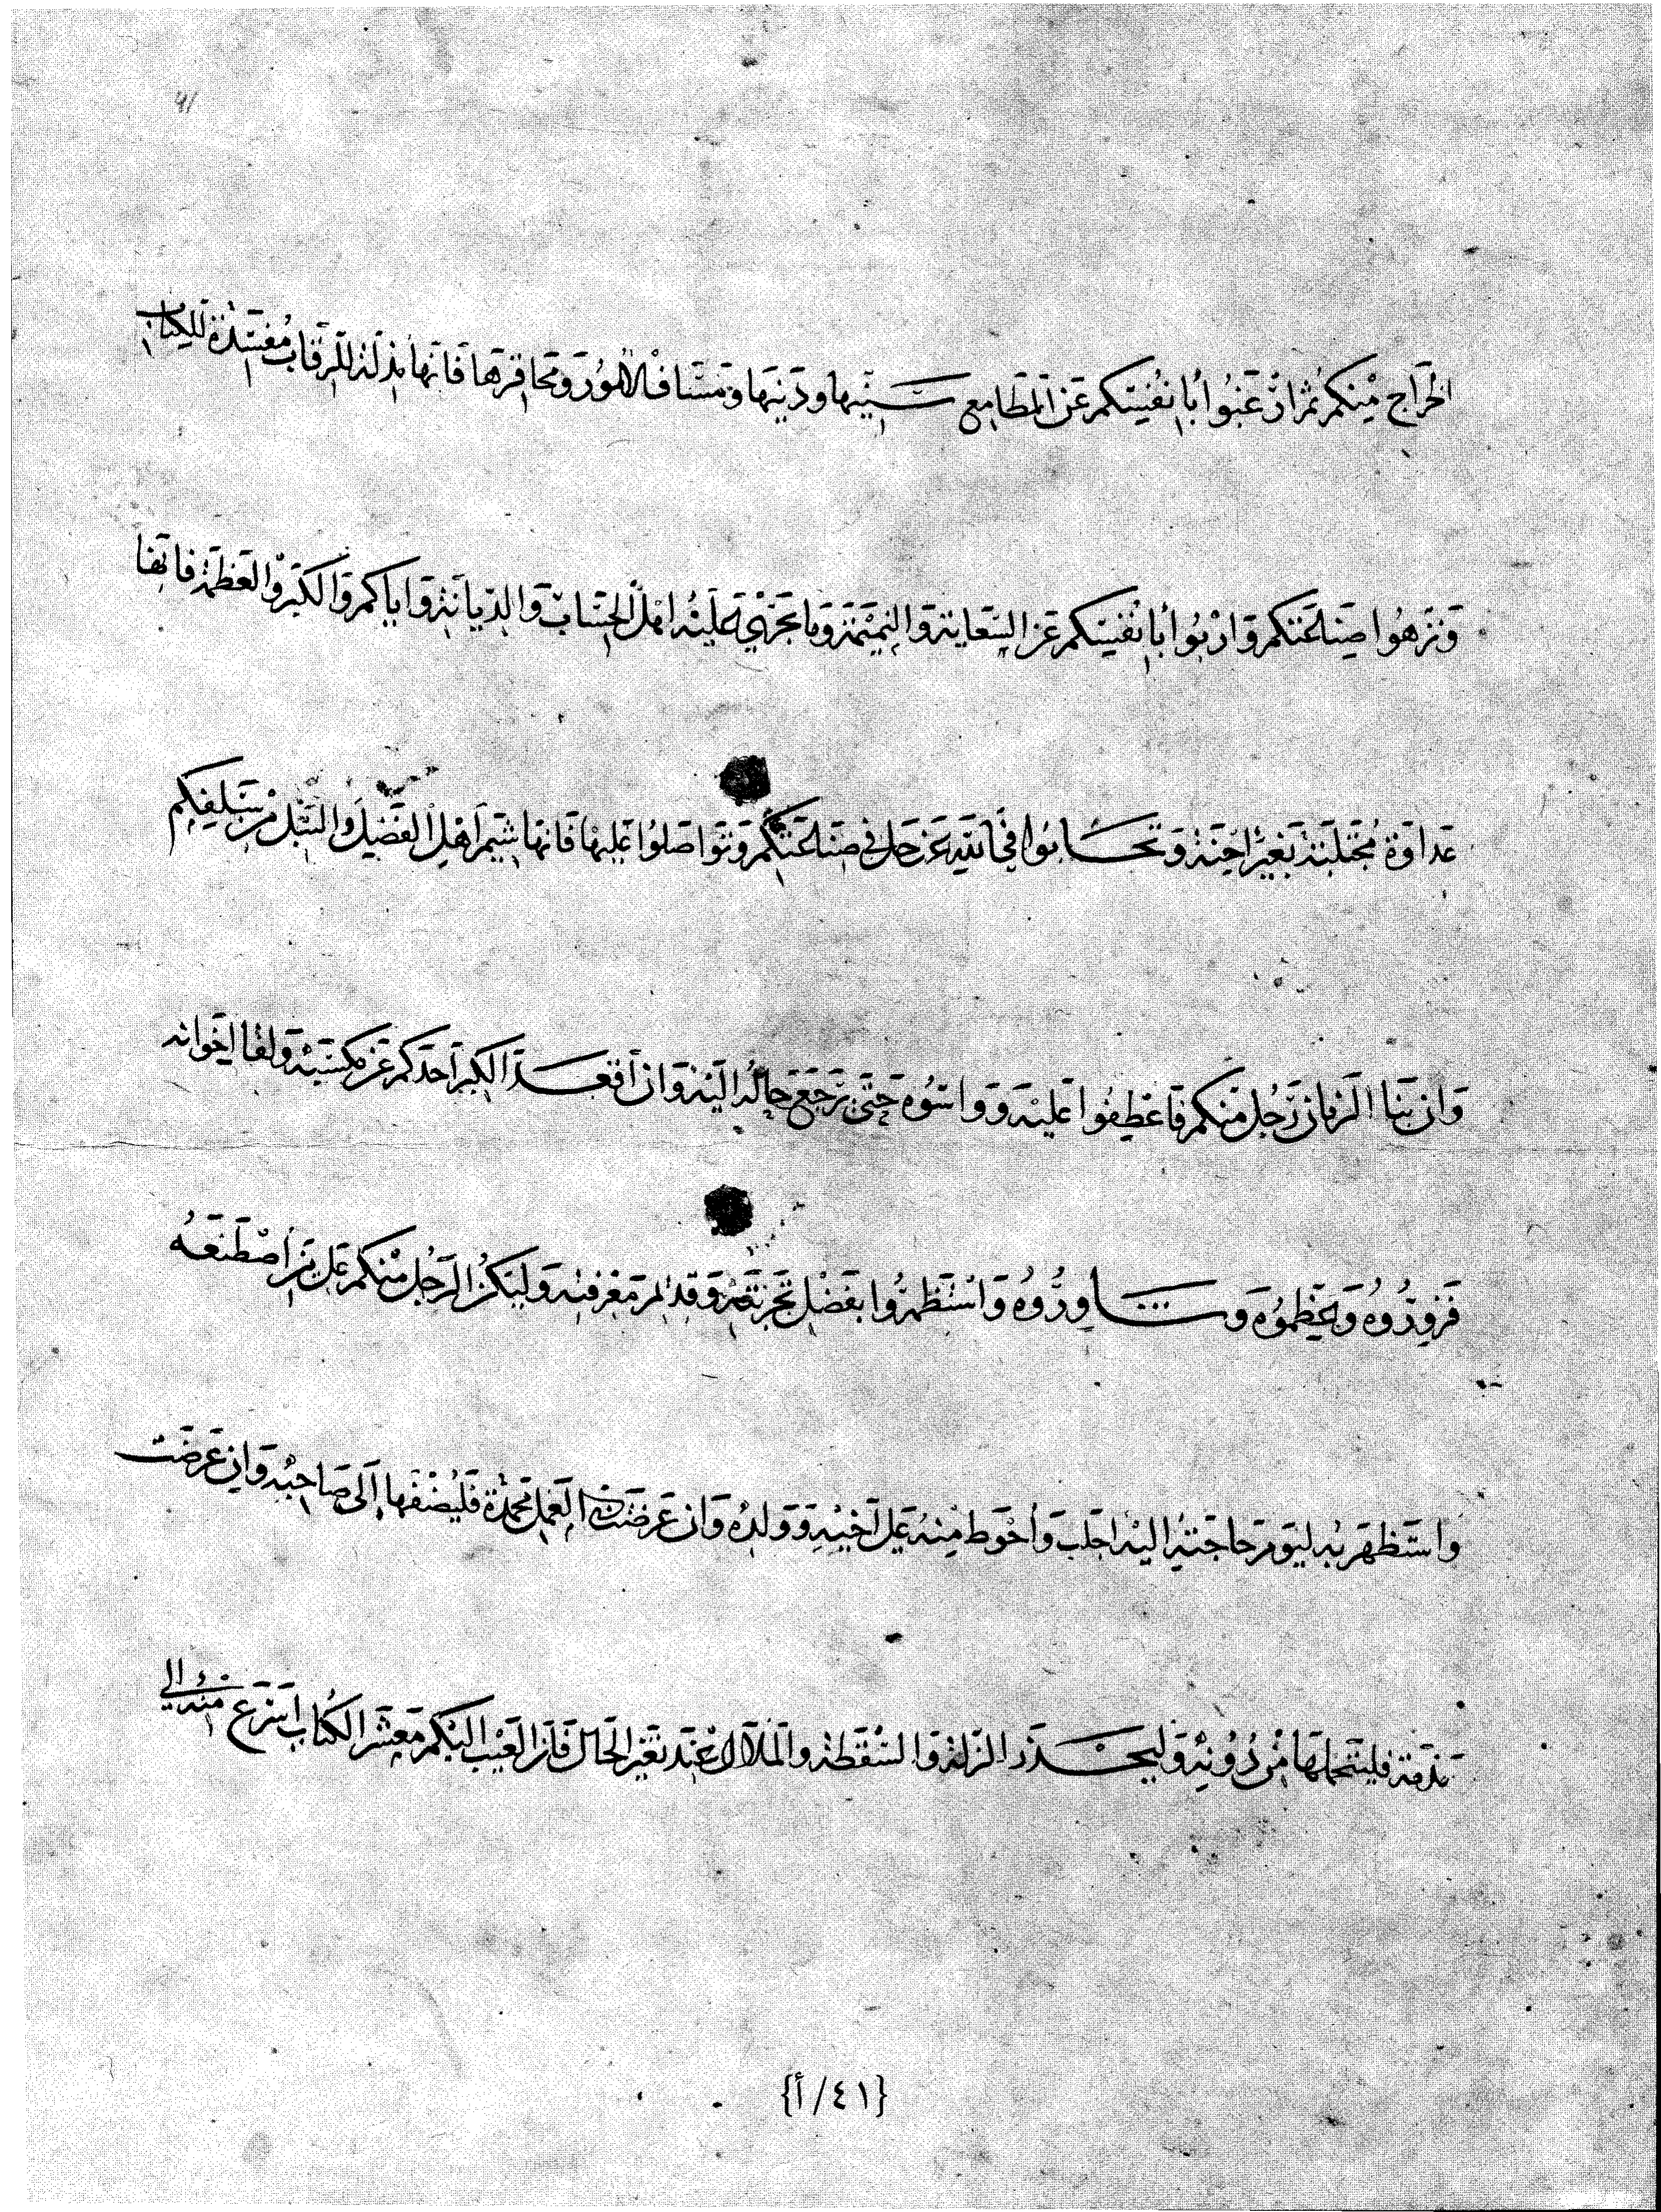 41
الخراج منكم ثم ارغبوا بانفسكم عن المطامع سنيها ودنيها ومساف الامور ومحاقرها فانها مذلة للرقاب مفسدة للكتاب
ونزهوا صناعتكم واربوا بانفسكم عن السعاية والنميمة وما عليه اهل والديانة واياكم والكبر والعظمة فانها
عداوة مجتلبة بغير احنة وتحابوا في الله عز وجل في صناعتكم وتواصلوا عليها فانها شيم اهل الفضل والنبل من سلفكم
وان نبا الزمان برجل منكم فاعطفوا عليه وواسوه حتى يرجع حاله اليه وان أقعد الكبر احدكم عن مكسبه ولقا اخوانه
فزوروه وعظموه وشاوروه واستظهروا بفضل تجربته وقدم معرفته وليكن الرجل منكم على من اصطنعه
واستظهر به ليوم حاجته اليه احدب وأحوط منه على اخيه وولده وان عرضت في العمل محمدة فليضفها الى صاحبه وان عرضت
مذمة فليتحملها من دونه وليحذر الزلة والسقطة والملال عند تغير الحال فان العيب اليكم معشر الكتاب اسرع منه الى
{٤١/أ}